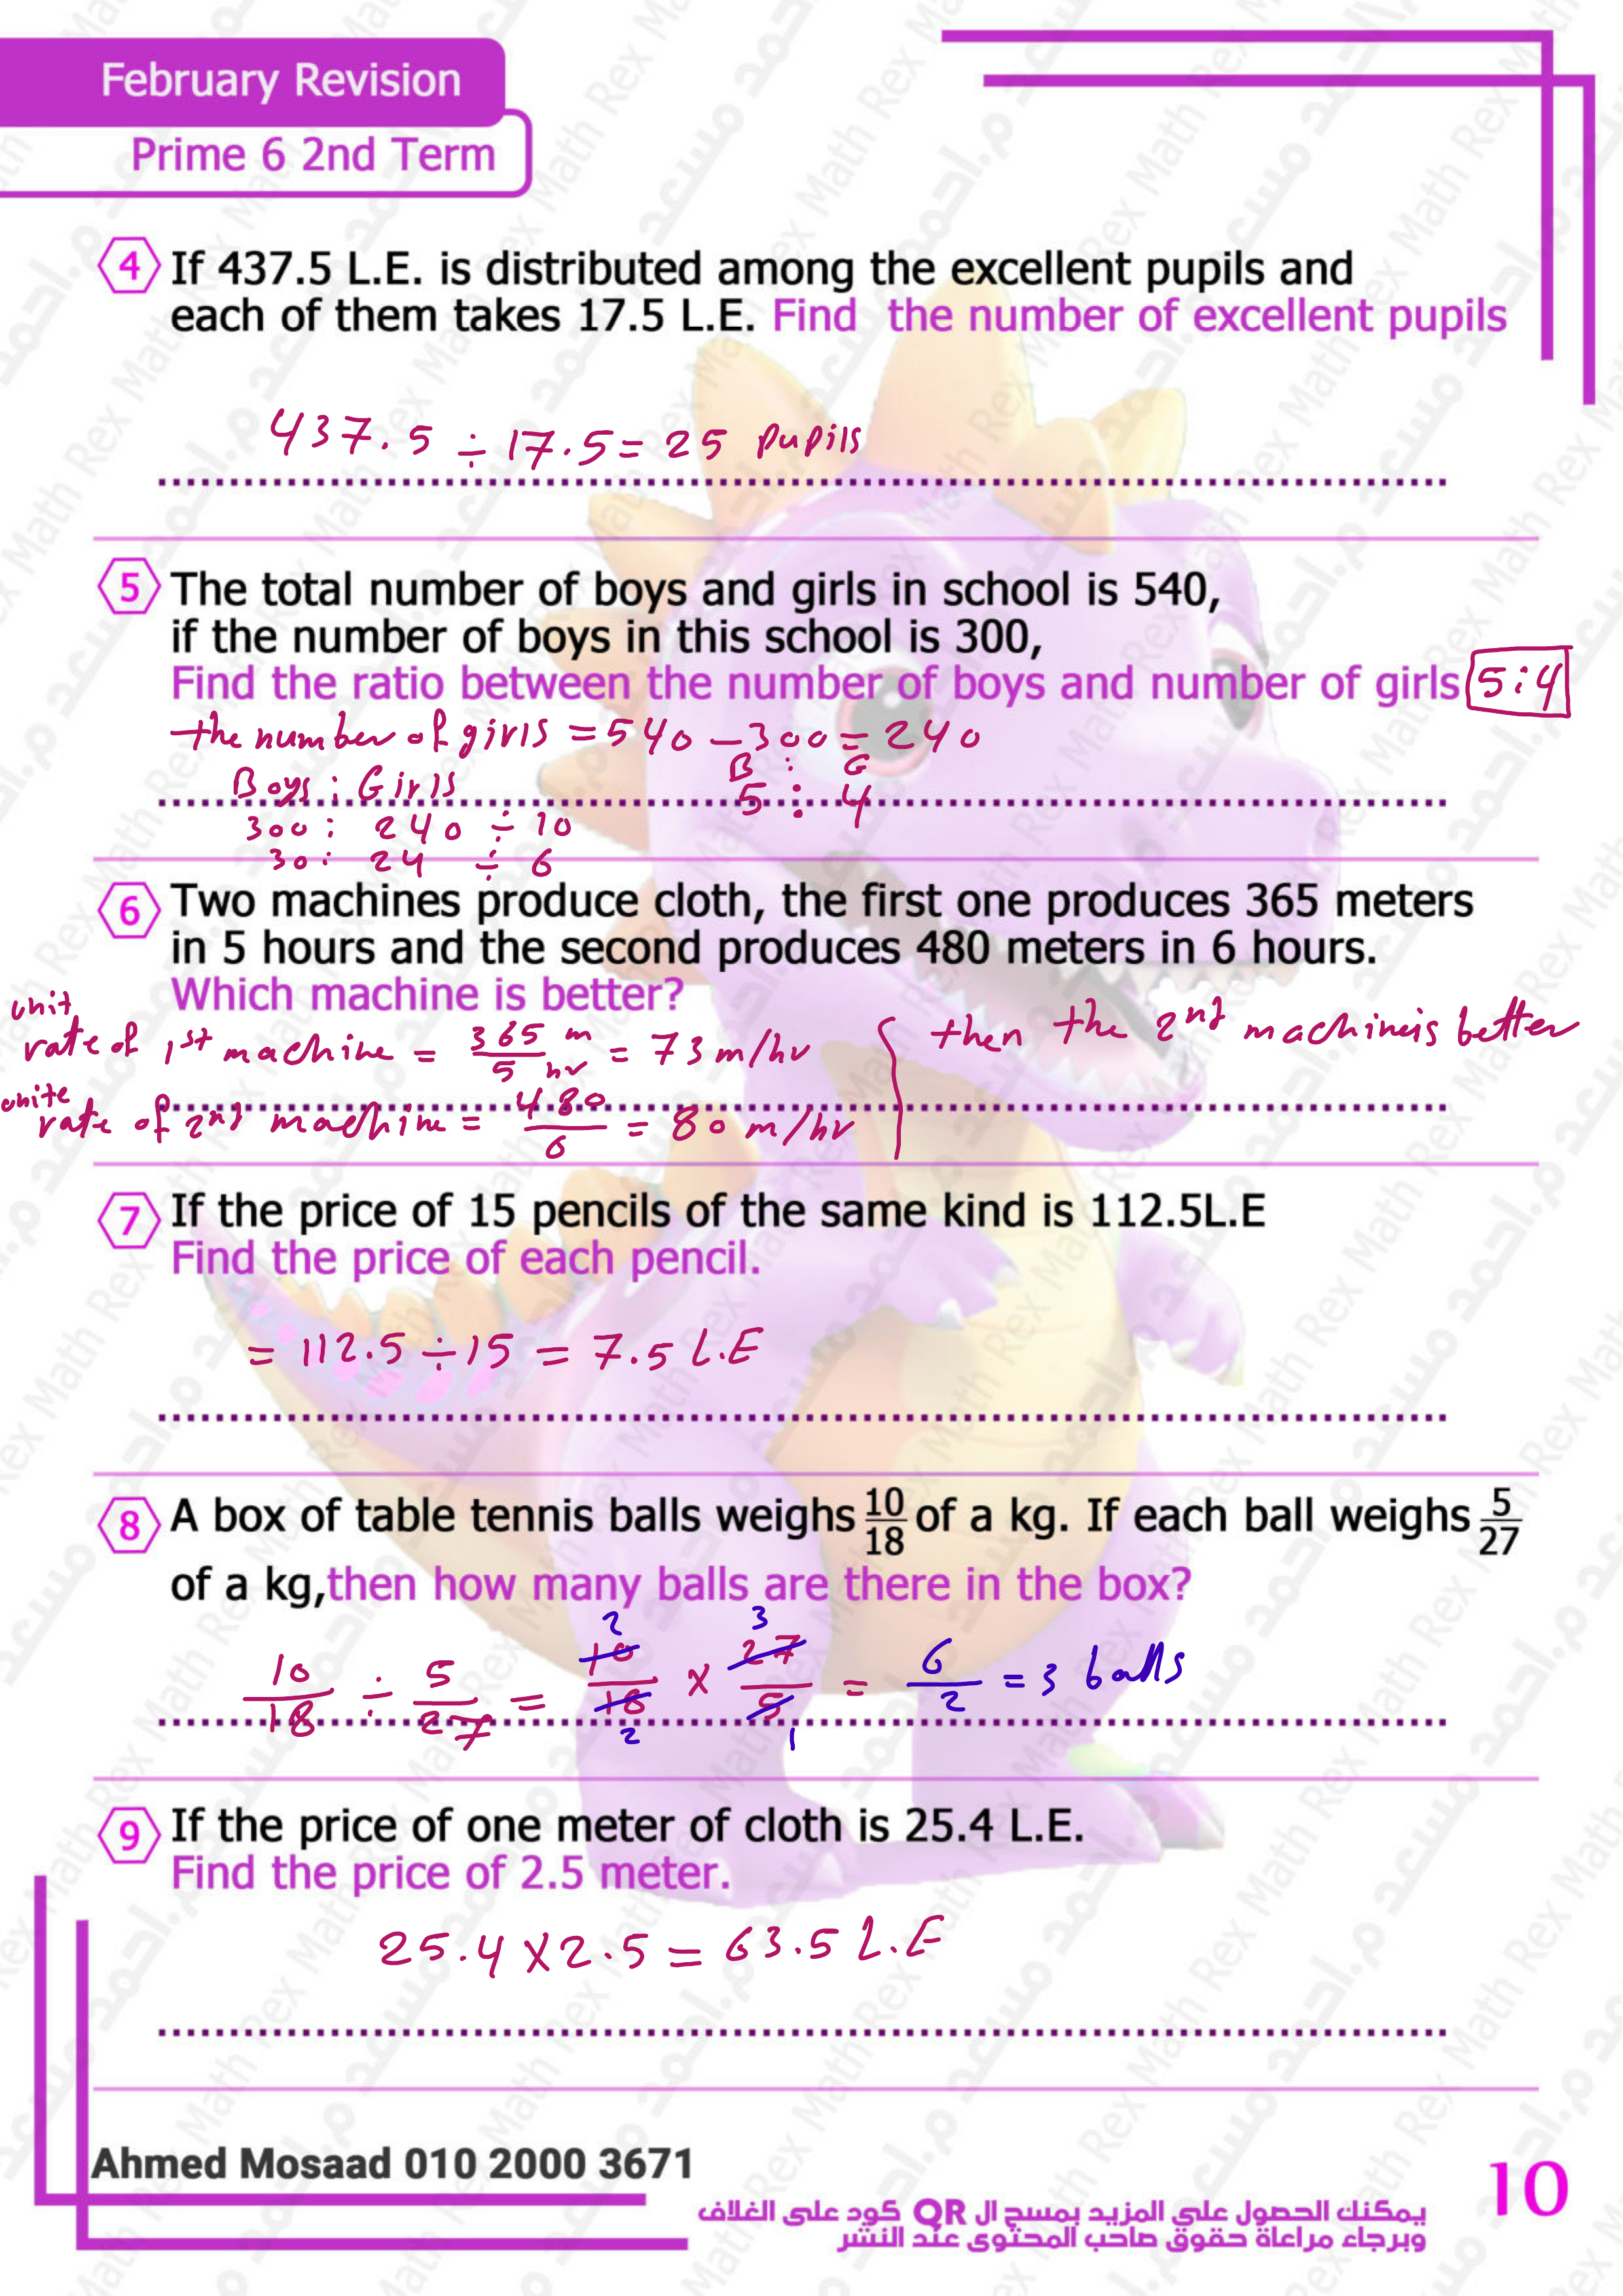 February Revision
Prime 6 2nd Term
4 If 437.5 L.E. is distributed among the excellent pupils and
each of them takes 17.5 L.E. Find the number of excellent pupils
437.5 ÷ 17.5 = 25 pupils
5 The total number of boys and girls in school is 540,
if the number of boys in this school is 300,
Find the ratio between the number of boys and number of girls 5:4
the number of girls = 540 - 300 = 240
B : G
Boys : Girls
5 : 4
300 : 240 ÷ 10
30 : 24 ÷ 6
6 Two machines produce cloth, the first one produces 365 meters
in 5 hours and the second produces 480 meters in 6 hours.
Which machine is better?
unit
rate of 1st machine = 365 m / 5 hr = 73 m/hr
then the 2nd machine is better
unite
rate of 2nd machine = 480 / 6 = 80 m/hr
7 If the price of 15 pencils of the same kind is 112.5L.E
Find the price of each pencil.
= 112.5 ÷ 15 = 7.5 L.E
8 A box of table tennis balls weighs 10/18 of a kg. If each ball weighs 5/27
of a kg,then how many balls are there in the box?
2 3
10/18 ÷ 5/27 = 10/18 × 27/5 = 6/2 = 3 balls
2 1
9 If the price of one meter of cloth is 25.4 L.E.
Find the price of 2.5 meter.
25.4 × 2.5 = 63.5 L.E
Ahmed Mosaad 010 2000 3671
يمكنك الحصول على المزيد بمسح ال QR كود على الغلاف
وبرجاء مراعاة حقوق صاحب المحتوى عند النشر
10
Math Rex
م.احمد مسعد